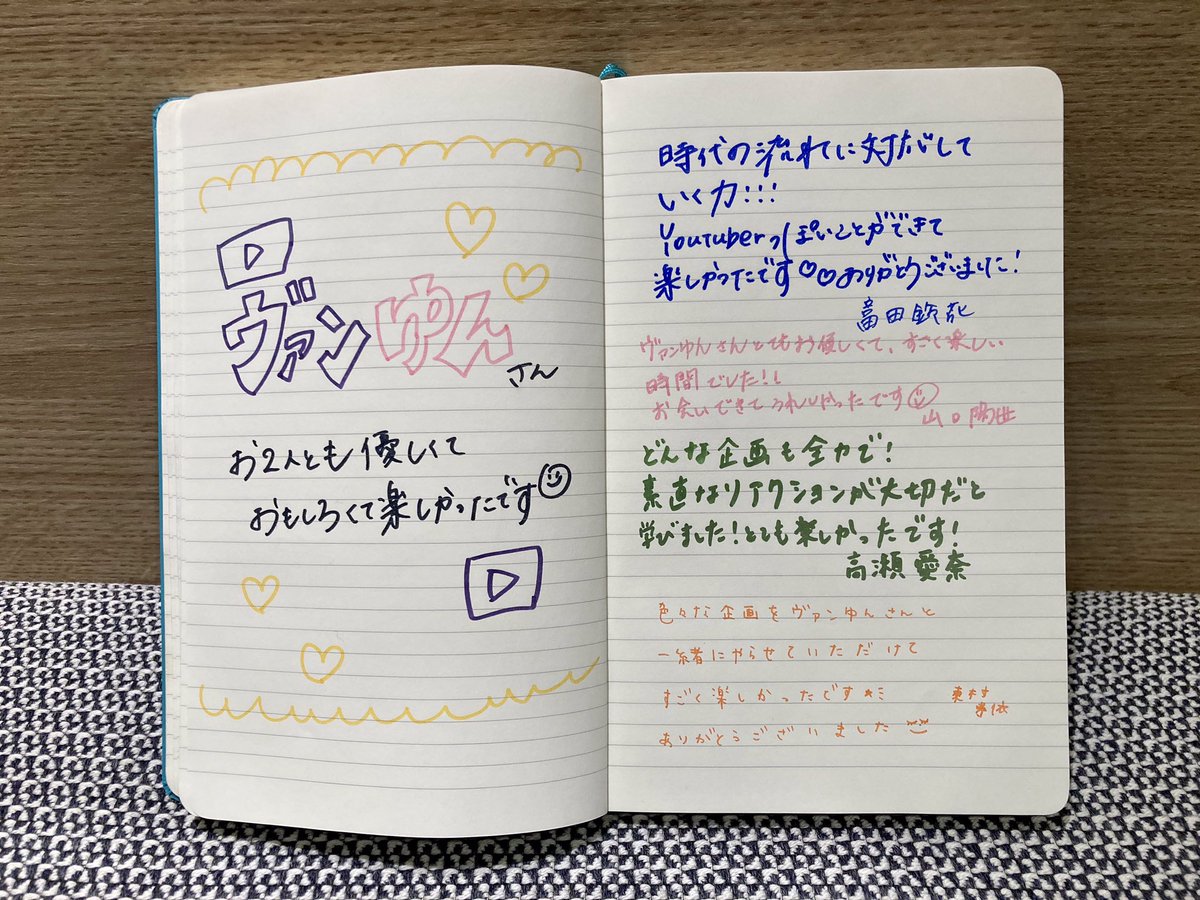 ヴァンゆん
さん
お2人とも優しくて
おもしろくて楽しかったです
時代の流れに対応して
いく力!!!
Youtuberっぽいことができて
楽しかったです♡♡ありがとうございました!
富田鈴花
ヴァンゆんさんとても優しくて、すごく楽しい
時間でした!!
お会いできてうれしかったです
山口陽世
どんな企画も全力で!
素直なリアクションが大切だと
学びました!とても楽しかったです!
高瀬愛奈
色々な企画をヴァンゆんさんと
一緒にやらせていただけて
すごく楽しかったです
ありがとうございました
東村
芽依